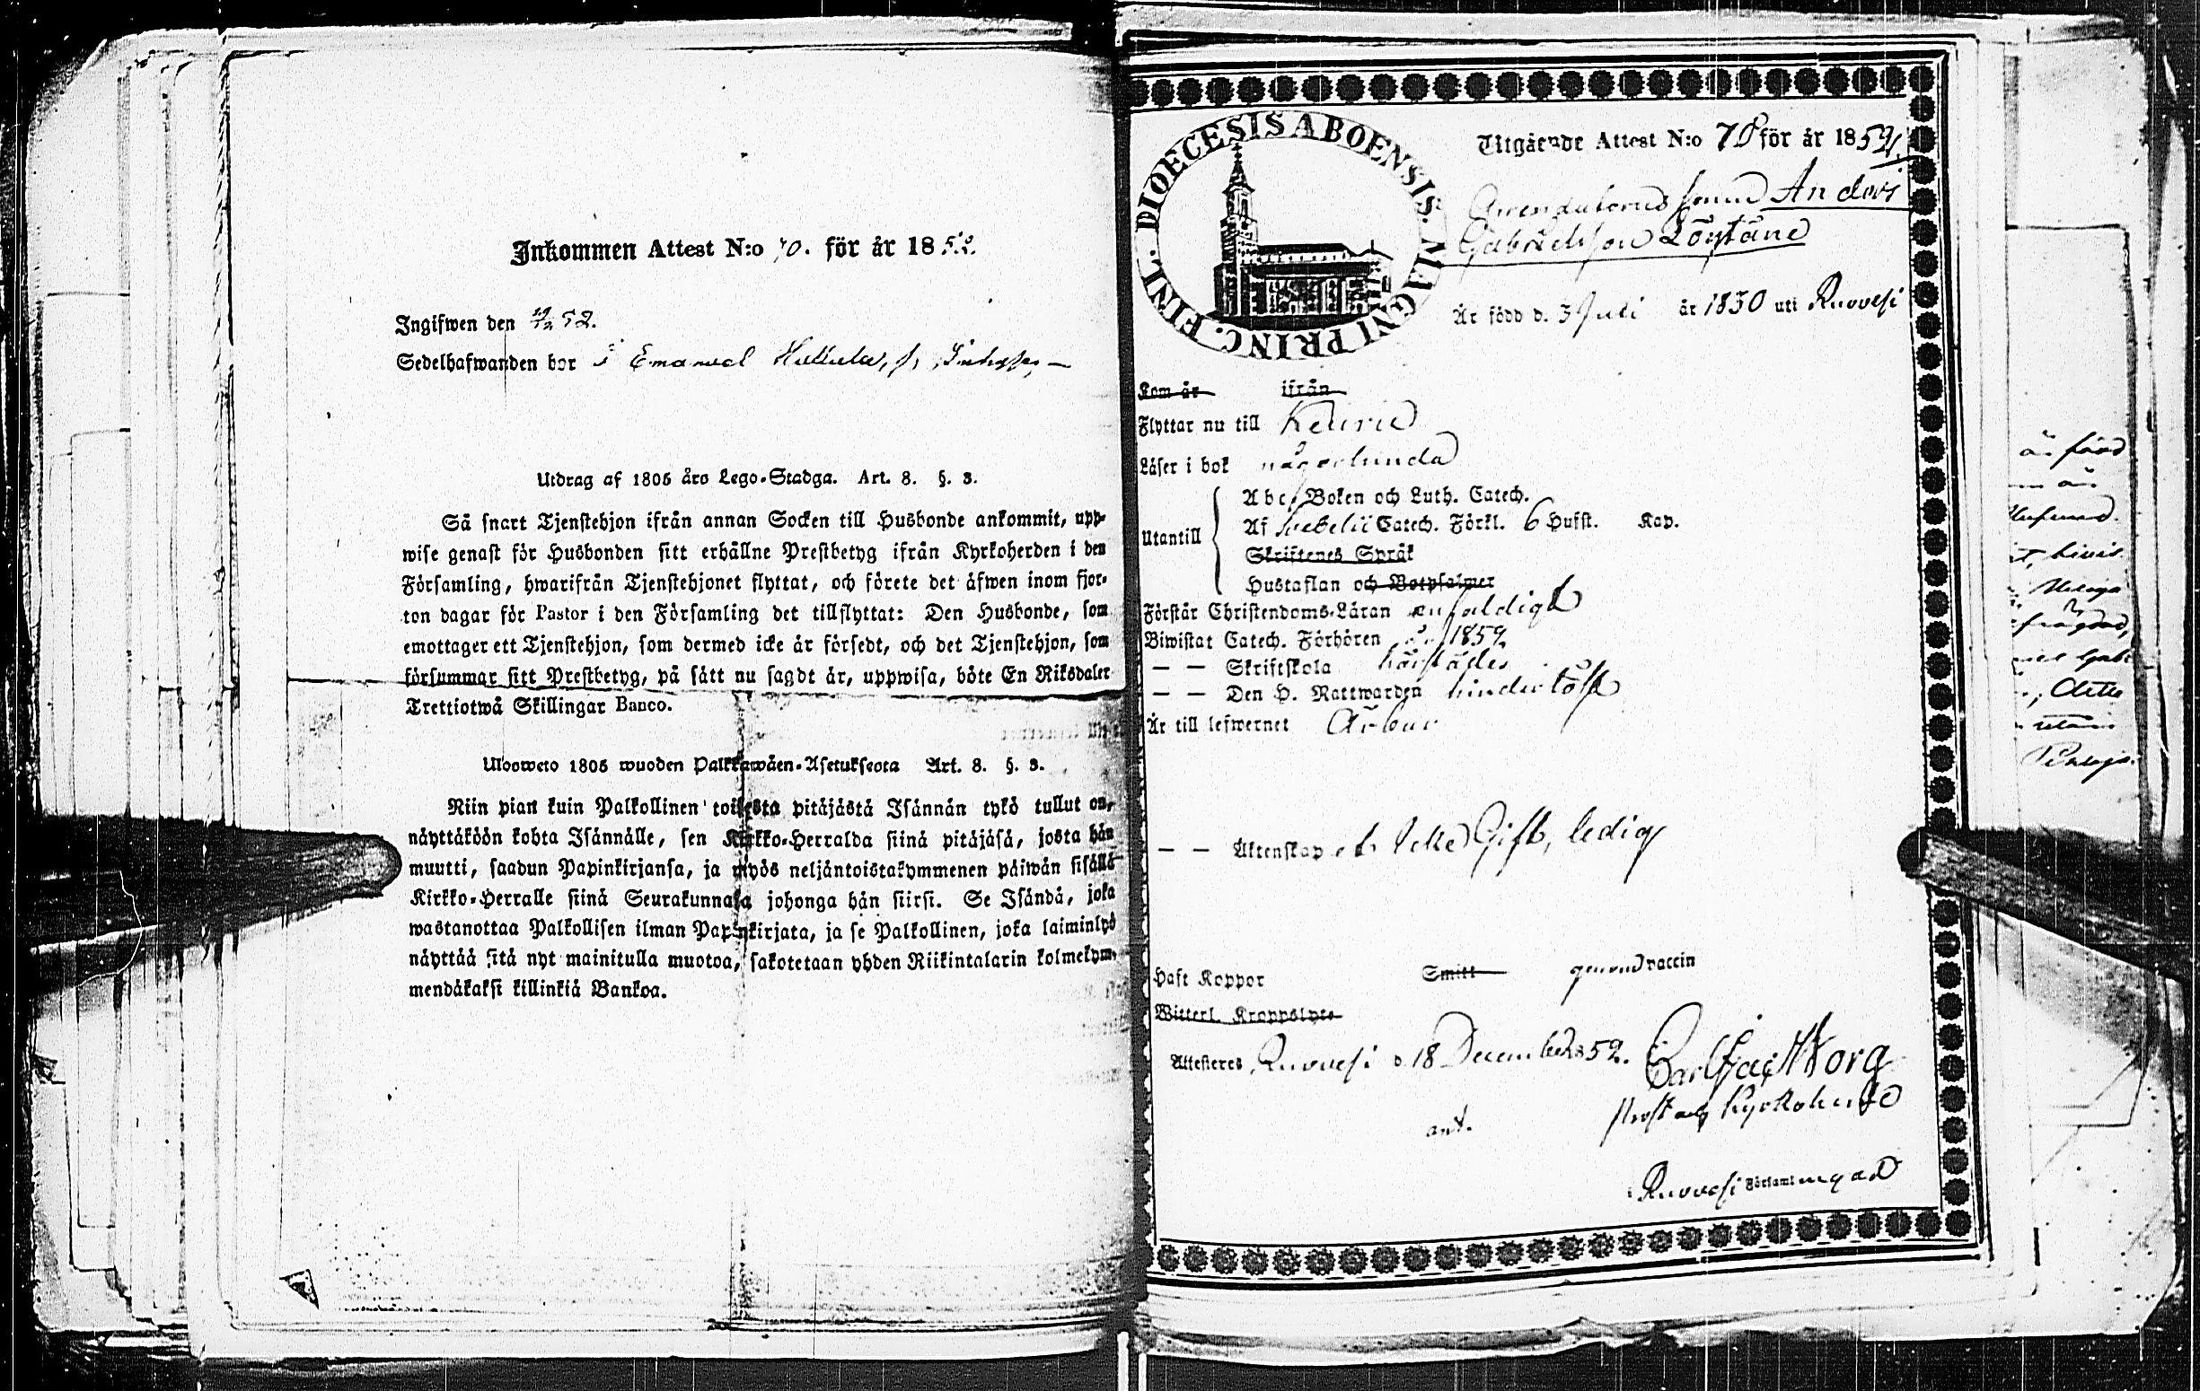 Inkommen Attest N:o 70. för år 1852.
Ingifwen den 19/12 52.
Sedelhafwanden bor i Emanuel
Utdrag af 1805 års Lego-Stadga. Art. 8. §. 3.
Så snart Tjenstehjon ifrån annan Socken till Husbonde ankommit, upp-
wise genast för Husbonden sitt erhållne Prestbetyg ifrån Kyrkoherden i den
Församling, hwarifrån Tjenstehjonet flyttat, och förete det äfwen inom fjor-
ton dagar för Pastor i den Församling det tillflyttat: Den Husbonde, som
emottager ett Tjenstehjon, som dermed icke är försedt, och det Tjenstehjon, som
försummar sitt Prestbetyg, på sätt nu sagdt är, uppwisa, böte En Riksdaler
Trettiotwå Skillingar Banco.
Ulosweto 1805 wuoden Palkkawäen-Asetuksesta Art. 8. §. 3.
Niin pian kuin Palkollinen toisesta pitäjästä Isännän tykö tullut on,
näyttäköön kohta Isännälle, sen Kirkko-Herralda siinä pitäjäsä, josta hän
muutti, saadun Papinkirjansa, ja myös neljäntoistakymmenen päiwän sisällä
Kirkko-Herralle siinä Seurakunnasa johonga hän siirsi. Se Isändä, joka
wastanottaa Palkollisen ilman Papinkirjata, ja se Palkollinen, joka laiminlyö
näyttää sitä nyt mainitulla muotoa, sakotetaan yhden Riikintalarin kolmekym-
mendäkaksi killinkiä Bankoa.
DIOECESIS ABOENSIS. MAGNI PRINC. FINL.
Utgående Attest N:o 78 för år 1852.
Arrendatorns sonen Anders
Gabrielsson Löytäne
Är född d. 3 Juli år 1830 uti Ruovesi
Kom år ifrån
Flyttar nu till Keuru
Läser i bok någorlunda
Utantill
Abc, Boken och Luth. Catech.
Af Svebelii Catech. Förkl. 6 Hufst. Kap.
Skriftenes Språk
Hustaflan och Botpsalmer
Förstår Christendoms-Läran enfaldigt
Biwistat Catech. Förhören år 1852
— — Skriftskola härstädes
— — Den H. Nattwarden
Är till lefwernet Ärbar
— — Äktenskap ej Gift, ledig
Haft Koppor Smitt genom vaccin
Witterl. Kroppslyte
Attesteres Ruovesi d. 18 December 1852. Carl Borg
ant. Prost och Kyrkoherde
Ruovesi Församlingar